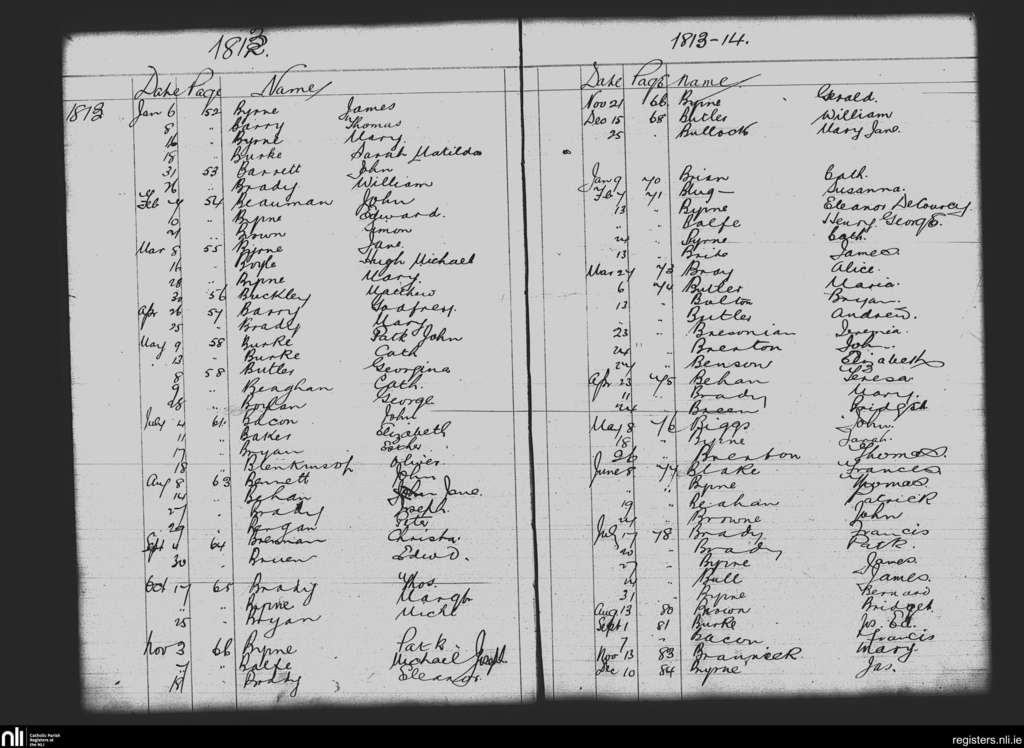 1813
Date Page Name
1813 Jan 6 52 Byrne James
8 " Barry Thomas
16 " Byrne Mary
18 " Burke Sarah Matilda
31 53 Barrett John
26 " Brady William
Feb 4 54 Beauman John
10 " Byrne Edward.
21 " Brown Simon
Mar 8 55 Byrne Jane
16 " Boyle Hugh Michael
28 " Byrne Mary
30 56 Buckley Matthew
Apr 26 57 Barry Godfrey
25 " Brady Mary
May 9 58 Burke Patk John
13 " Burke Cath
8 58 Butler Georgina
9 " Beaghan Cath.
28 " Boylan George
July 4 61 Bacon John
11 " Baker Elizabeth
17 " Bryan Esther
18 " Blenkinsop Oliver
Aug 8 63 Bennett John
14 " Behan Jane.
27 " Brady Joseph.
29 " Bergan Peter
Sept 4 64 Brennan Christr.
30 " Brien Edwd.
Oct 17 65 Brady Thos.
" " Byrne Margt
25 " Bryan Michl
Nov 3 66 Byrne Patk.
7 " Balfe Michael Joseph
18 " Brody Eleanor.
1813-14.
Date Page Name
Nov 21 66 Byrne Gerald.
Dec 15 68 Butler William
25 " Bullock Mary Jane.
Jan 9 70 Brian Cath.
Feb 7 71 Susanna.
13 " Byrne Eleanor DeCourcy.
" " Balfe Henry George.
24 " Byrne Cath.
13 " James
Mar 27 73 Bray Alice.
6 74 Butler Maria.
13 " Bolton Bryan.
" " Butler Andrew.
23 " Bresonian
24 " Brenton John.
24 " Benson Elizabeth
Apr 23 75 Behan Teresa
11 " Brady Mary.
24 " Breen Bridget
May 8 76 Biggs John.
18 " Byrne Sarah.
26 " Brenton Thomas.
June 8 77 Blake Frances
" " Byrne Thomas.
19 " Beahan Patrick
24 " Browne John
July 17 78 Brady Francis
20 " Brady Patk.
27 " Byrne James
14 " Bull James.
31 " Byrne Bernard
Aug 13 80 Brown Bridget
Sept 1 81 Burke Js. Ed.
7 " Bacon Francis
Nov 13 83 Branneck Mary
Dec 10 84 Byrne Jas.
nli Catholic Parish
Registers at
the NLI
registers.nli.ie